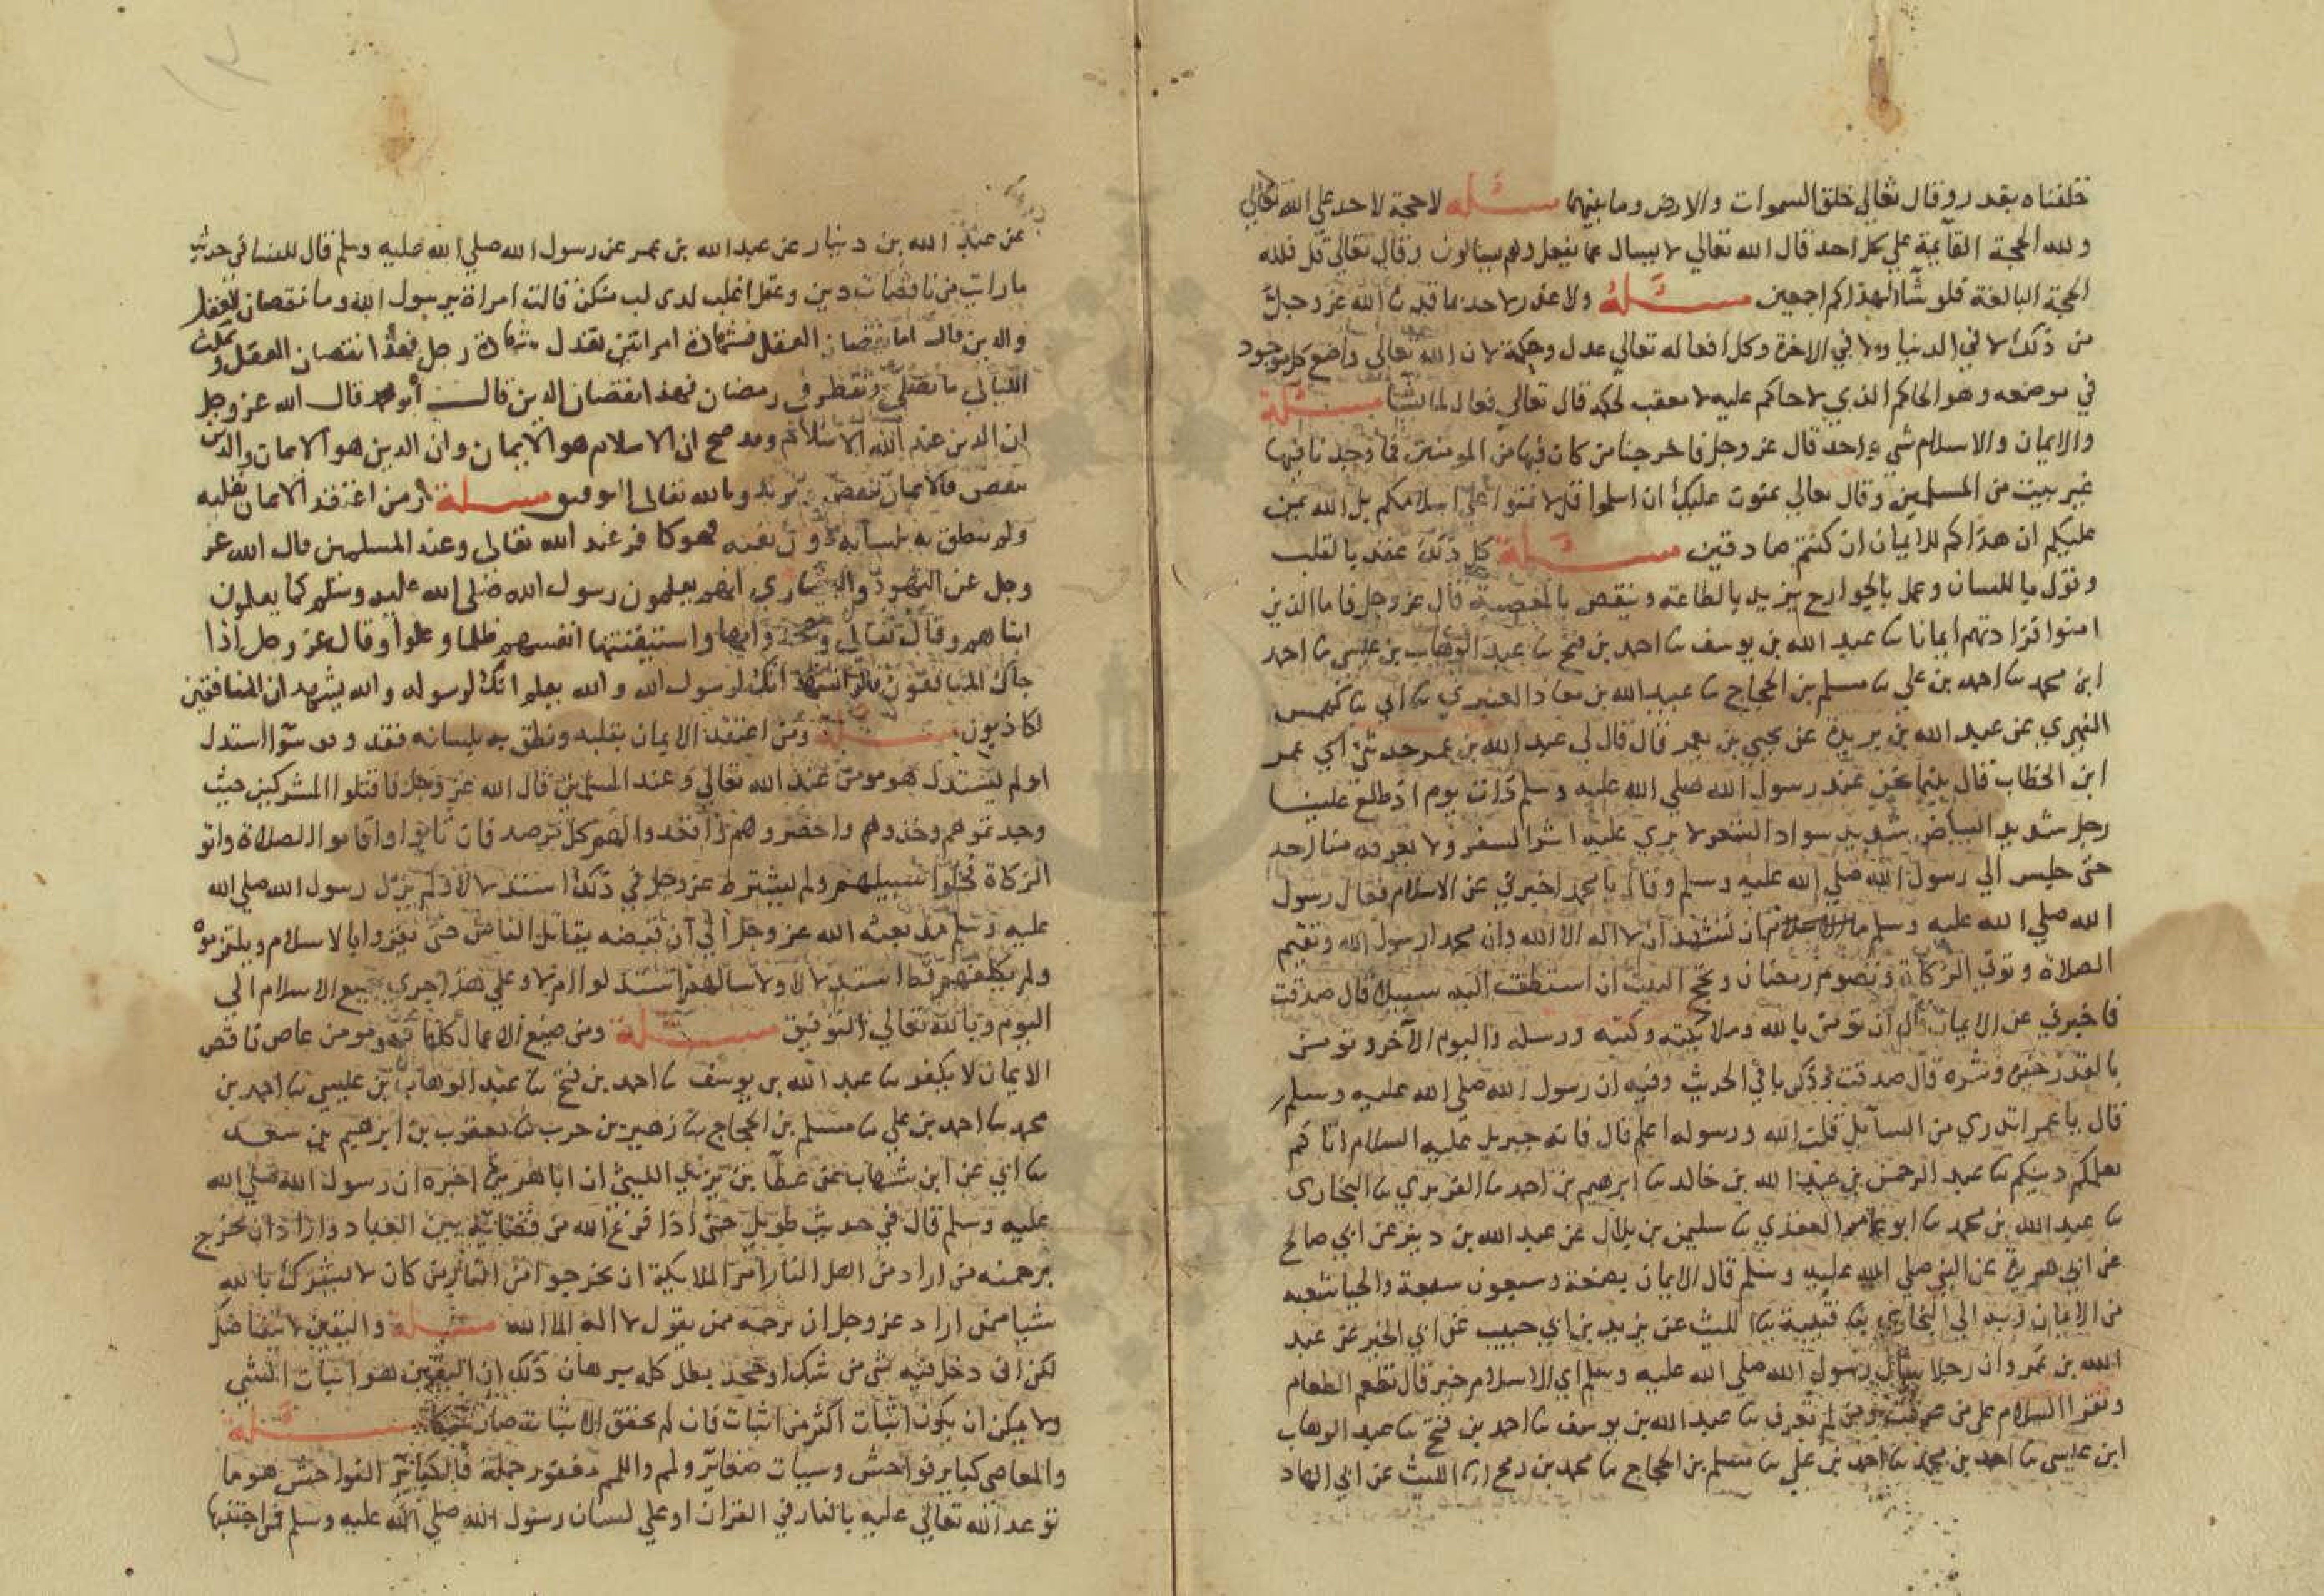 خلقناه بقدر وقال تعالى خلق السموات والارض وما بينهما مسئلة لا حجة لاحد على الله تعالى
ولله الحجة القآيمة على كل احد قال الله تعالى لا يسال عما يفعل وهم يسالون وقال تعالى قل فلله
الحجة البالغة فلو شآ لهداكم اجمعين مسئلة ولا عذر لاحد بما قدره الله عز وجل
من ذلك لا في الدنيا ولا في الاخرة وكل افعاله تعالى عدل وحكمة لان الله تعالى واضع كل موجود
في موضعه وهو الحاكم الذي لا حاكم عليه لا معقب لحكمه قال تعالى فعال لما يشآ مسئلة
والايمان والاسلام شي واحد قال عز وجل فاخرجنا من كان فيها من المومنين فما وجدنا فيها
غير بيت من المسلمين وقال تعالى يمنون عليك ان اسلموا قل لا تمنوا على اسلامكم بل الله يمن
عليكم ان هداكم للايمان ان كنتم صادقين مسئلة كل ذلك عقد بالقلب
وقول باللسان وعمل بالجوارح يزيد بالطاعة وينقص بالمعصية قال عز وجل فاما الذين
امنوا فزادتهم ايمانا نا عبد الله بن يوسف نا احمد بن فتح نا عبد الوهاب بن عيسى نا احمد
ابن محمد نا احمد بن علي نا مسلم بن الحجاج نا عبيد الله بن معاذ العنبري نا ابي نا كهمس
النهري عن عبد الله بن بريدة عن يحيى بن يعمر قال قال لي عبد الله بن عمر حدثني ابي عمر
ابن الخطاب قال بينما نحن عند رسول الله صلى الله عليه وسلم ذات يوم اذ طلع علينا
رجل شديد البياض شديد سواد الشعر لا يرى عليه اثر السفر ولا يعرفه منا احد
حتى جلس الى رسول الله صلى الله عليه وسلم وقال يا محمد اخبرني عن الاسلام فقال رسول
الله صلى الله عليه وسلم ان تشهد ان لا اله الا الله وان محمدا رسول الله وتقيم
الصلاة وتوتي الزكاة وتصوم رمضان وتحج البيت ان استطعت اليه سبيلا قال صدقت
فاخبرني عن الايمان قال ان تومن بالله وملايكته وكتبه ورسله واليوم الآخر وتومن
بالقدر خيره وشره قال صدقت وذكر باقي الحديث وفيه ان رسول الله صلى الله عليه وسلم
قال يا عمر اتدري من السآيل قلت الله ورسوله اعلم قال فانه جبريل عليه السلام اتاكم
يعلمكم دينكم نا عبد الرحمن بن عبد الله بن خالد نا ابرهيم بن احمد نا الفربري نا البخاري
نا عبد الله بن محمد نا ابو عامر العقدي نا سليمن بن بلال عن عبد الله بن دينر عن ابي صالح
عن ابي هريرة عن النبي صلى الله عليه وسلم قال الايمان بضعة وسبعون شعبة والحيا شعبه
من الايمان وبه الى البخاري نا قتيبة نا الليث عن يزيد بن ابي حبيب عن ابي الخير عن عبد
الله بن عمرو ان رجلا سأل رسول الله صلى الله عليه وسلم اي الاسلام خير قال تطعم الطعام
وتقرا السلام على من عرفت ومن لم تعرف نا عبد الله بن يوسف نا احمد بن فتح نا عبد الوهاب
ابن عيسى نا احمد بن محمد نا احمد بن علي نا مسلم بن الحجاج نا محمد بن رمح انا الليث عن ابن الهاد
١٣
عن عبد الله بن دينار عن عبد الله بن عمر عن رسول الله صلى الله عليه وسلم قال للنسا في حديث
ما رايت من ناقصات دين وعقل اغلب لذي لب منكن قالت امراة يرسول الله وما نقصان العقل
والدين قال اما نقصان العقل فشهادة امراتين تعدل شهادة رجل فهذا نقصان العقل وتمكث
الليالي ما تصلي وتفطر في رمضان فهذا نقصان الدين قال ابو محمد قال الله عز وجل
ان الدين عند الله الاسلام وقد صح ان الاسلام هو الايمان وان الدين هو الايمان والدين
ينقص فالايمان ينقص ويزيد وبالله تعالى التوفيق مسئلة ومن اعتقد الايمان بقلبه
ولم ينطق به بلسانه دون تقية فهو كافر عند الله تعالى وعند المسلمين قال الله عز
وجل عن اليهود والنصاري انهم يعلمون رسول الله صلى الله عليه وسلم كما يعلمون
ابناهم وقال تعالى وجحدوا بها واستيقنتها انفسهم ظلما وعلوا وقال عز وجل اذا
جاك المنافقون قالوا نشهد انك لرسول الله والله يعلم انك لرسوله والله يشهد ان المنافقين
لكاذبون مسئلة ومن اعتقد الايمان بقلبه ونطق به بلسانه فقد وفق سوآ استدل
او لم يستدل هو مومن عند الله تعالى وعند المسلمين قال الله عز وجل فاقتلوا المشركين حيث
وجدتموهم وخذوهم واحصروهم واقعدوا لهم كل مرصد فان تابوا واقاموا الصلاة واتو
الزكاة فخلوا سبيلهم ولم يشترط عز وجل في ذلك استدلالا ولم يزل رسول الله صلى الله
عليه وسلم مذ بعثه الله عز وجل الى ان قبضه يقاتل الناس حتى يقروا بالاسلام ويلتزموه
ولم يكلفهم قط استدلالا ولا سالهم استدلوا ام لا وعلى هذا جرى جميع الاسلام الى
اليوم وبالله تعالى التوفيق مسئلة ومن ضيع الاعمال كلها فهو مومن عاص ناقص
الايمان لا يكفر نا عبد الله بن يوسف نا احمد بن فتح نا عبد الوهاب بن عيسى نا احمد بن
محمد نا احمد بن علي نا مسلم بن الحجاج نا زهير بن حرب نا يعقوب بن ابرهيم بن سعد
نا ابي عن ابن شهاب عن عطآ بن يزيد الليثي ان ابا هريرة اخبره ان رسول الله صلى الله
عليه وسلم قال في حديث طويل حتى اذا فرغ الله من قضائه بين العباد واراد ان يخرج
برحمته من اراد من اهل النار امر الملايكة ان يخرجوا من النار من كان لا يشرك بالله
شيا ممن اراد عز وجل ان يرحمه ممن يقول لا اله الا الله مسئلة واليقين لا يتفاضل
لكن ان دخل فيه شي من شك او جحد بطل كله برهان ذلك ان اليقين هو اثبات الشي
ولا يمكن ان يكون اثبات اكثر من اثبات فان لم يحقق الاثبات صار شكا مسئلة
والمعاصي كباير فواحش وسيات صغاير ولمم واللمم مغفور جملة فالكباير الفواحش هو ما
توعد الله تعالى عليه بالنار في القران او على لسان رسول الله صلى الله عليه وسلم فمن اجتنبها